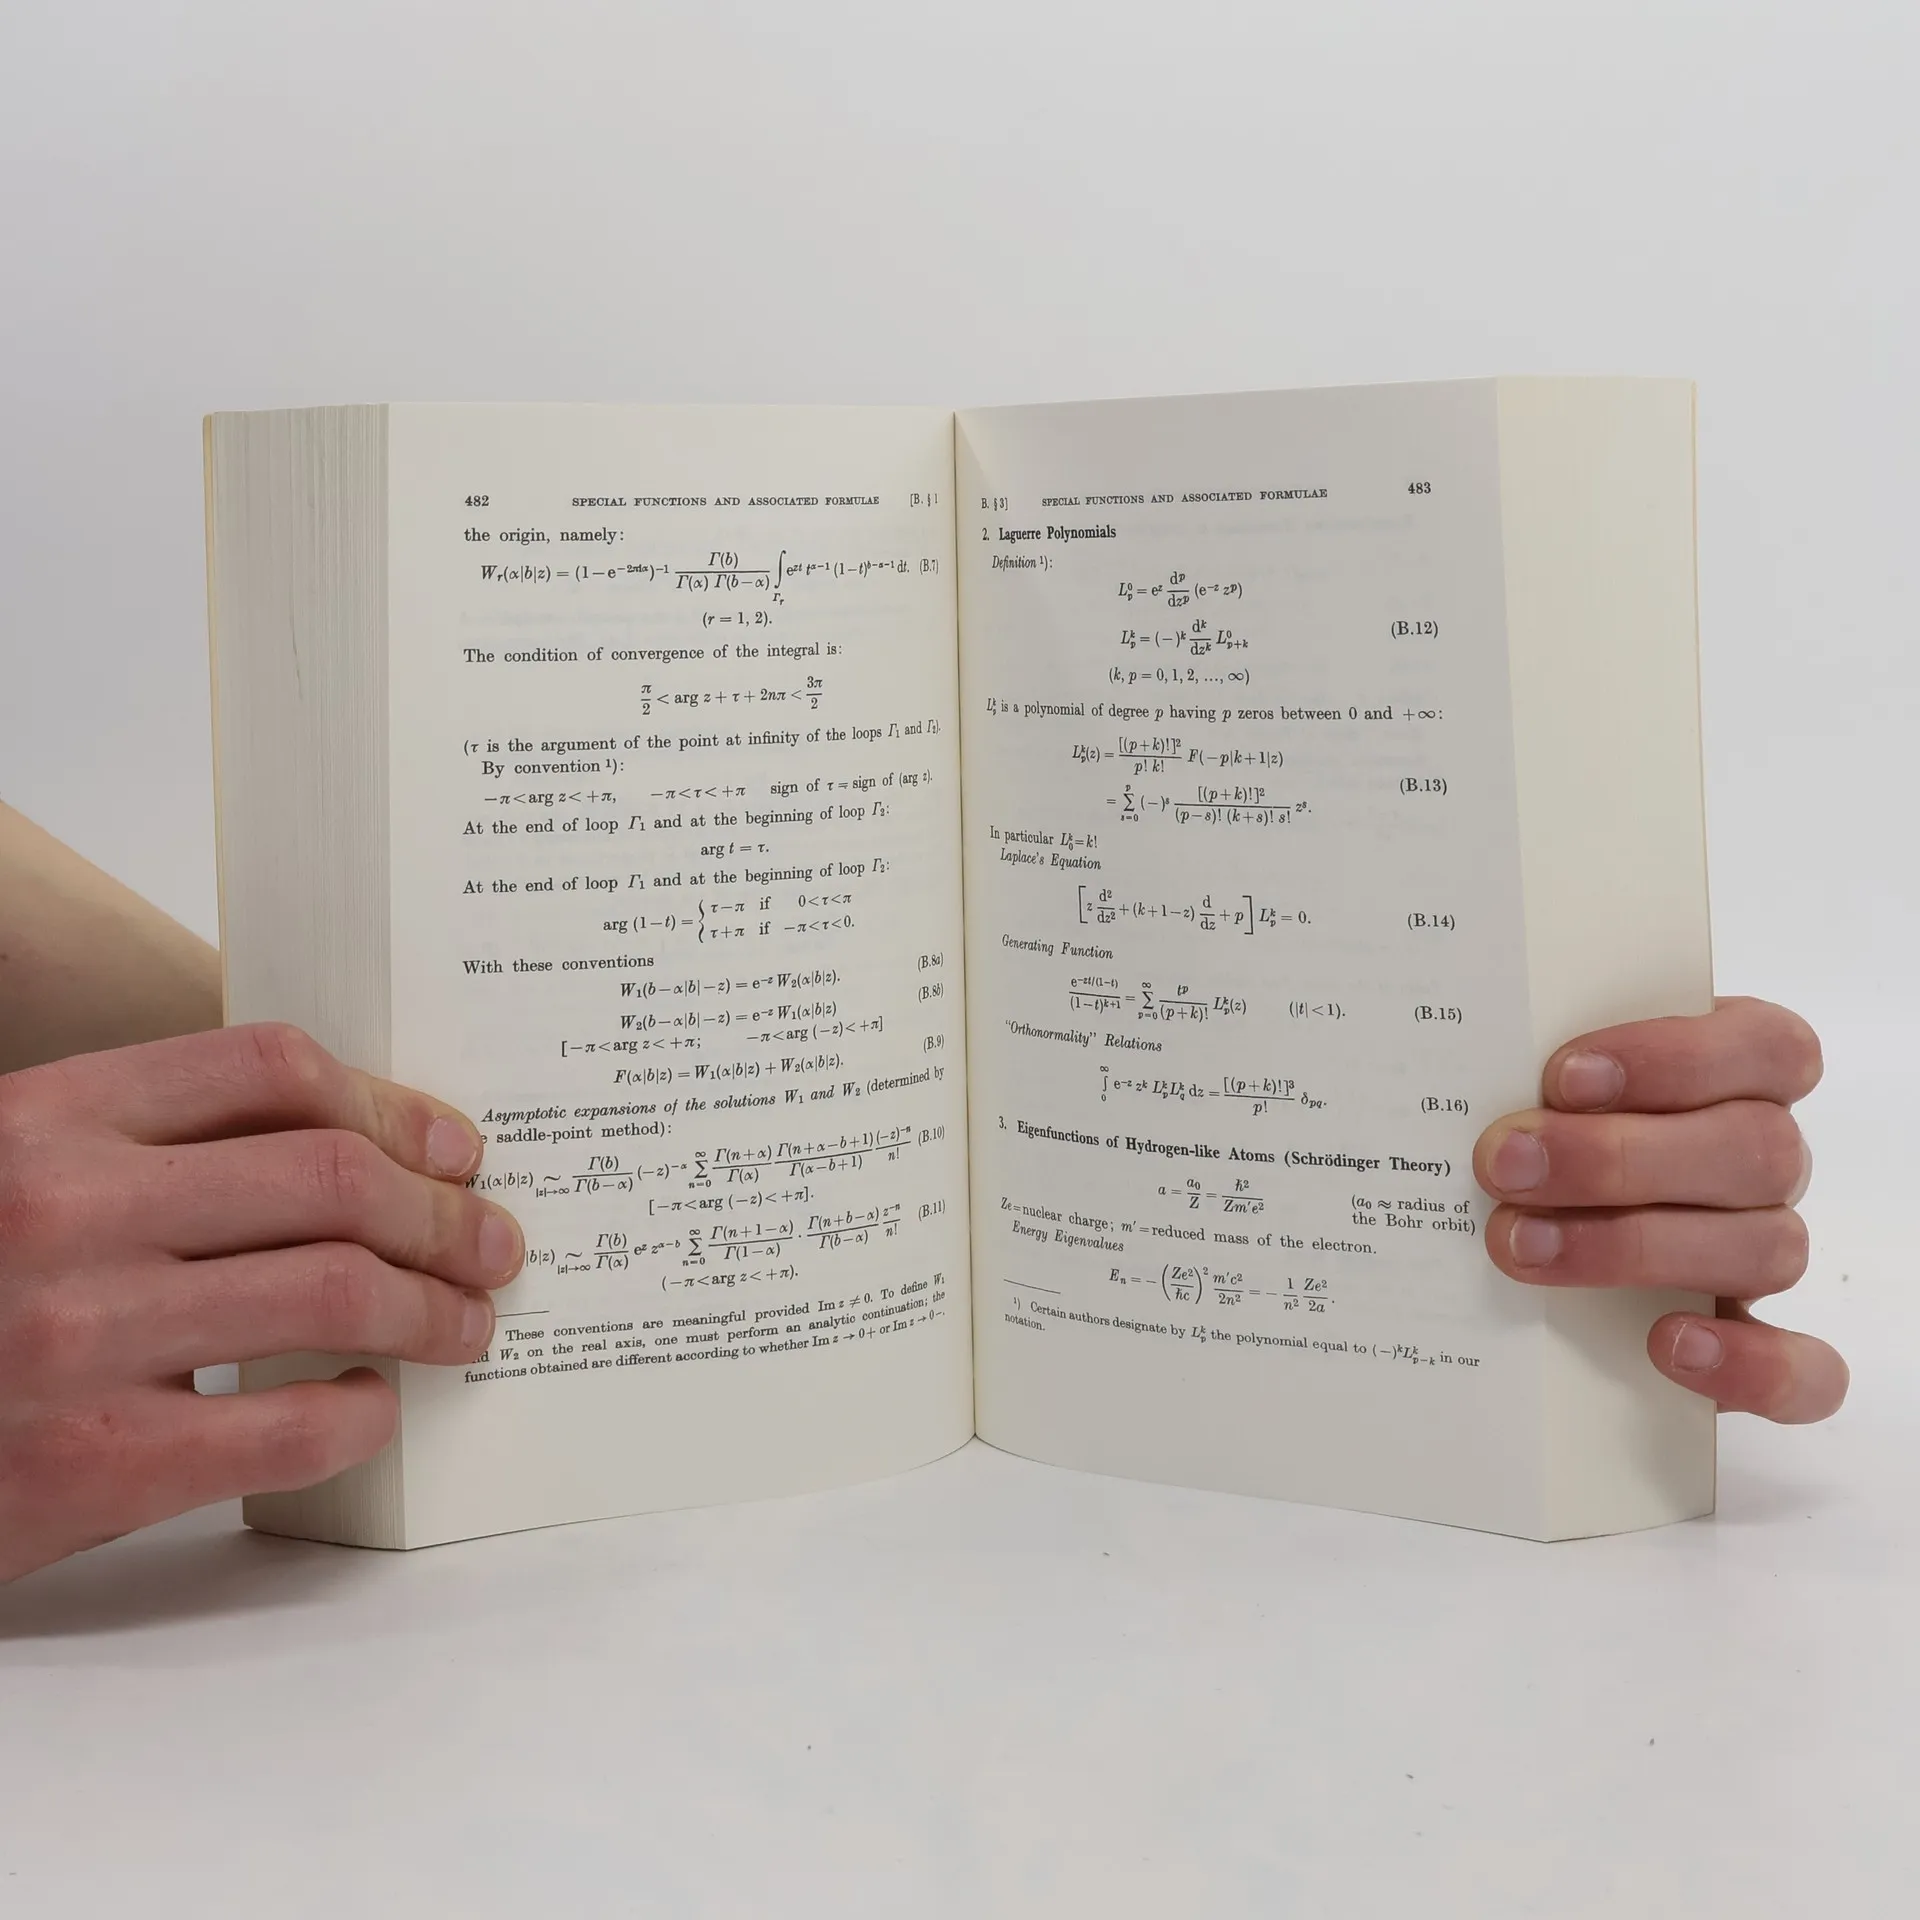 482 SPECIAL FUNCTIONS AND ASSOCIATED FORMULAE [B. § 1
the origin, namely:
W_r(α|b|z) = (1−e^{−2πiα})^{−1} Γ(b)/(Γ(α) Γ(b−α)) ∫_{Γ_r} e^{zt} t^{α−1} (1−t)^{b−α−1} dt. (B.7)
(r = 1, 2).
The condition of convergence of the integral is:
π/2 < arg z + τ + 2nπ < 3π/2
(τ is the argument of the point at infinity of the loops Γ₁ and Γ₂).
By convention ¹):
−π<arg z<+π, −π<τ<+π sign of τ = sign of (arg z).
At the end of loop Γ₁ and at the beginning of loop Γ₂:
arg t = τ.
At the end of loop Γ₁ and at the beginning of loop Γ₂:
arg (1−t) = { τ−π if 0<τ<π
τ+π if −π<τ<0.
With these conventions
W₁(b−α|b|−z) = e^{−z} W₂(α|b|z). (B.8a)
W₂(b−α|b|−z) = e^{−z} W₁(α|b|z) (B.8b)
[−π<arg z<+π; −π<arg (−z)<+π]
F(α|b|z) = W₁(α|b|z) + W₂(α|b|z). (B.9)
Asymptotic expansions of the solutions W₁ and W₂ (determined by
saddle-point method):
W₁(α|b|z) ∼_{|z|→∞} Γ(b)/Γ(b−α) (−z)^{−α} ∑_{n=0}^{∞} Γ(n+α)/Γ(α) Γ(n+α−b+1)/Γ(α−b+1) (−z)^{−n}/n! (B.10)
[−π<arg (−z)<+π].
|b|z) ∼_{|z|→∞} Γ(b)/Γ(α) e^z z^{α−b} ∑_{n=0}^{∞} Γ(n+1−α)/Γ(1−α) · Γ(n+b−α)/Γ(b−α) z^{−n}/n! (B.11)
(−π<arg z<+π).
These conventions are meaningful provided Im z ≠ 0. To define W₁
W₂ on the real axis, one must perform an analytic continuation; the
functions obtained are different according to whether Im z → 0+ or Im z → 0−.
B. § 3] SPECIAL FUNCTIONS AND ASSOCIATED FORMULAE 483
2. Laguerre Polynomials
Definition ¹):
L_p^0 = e^z d^p/dz^p (e^{−z} z^p)
L_p^k = (−)^k d^k/dz^k L_{p+k}^0 (B.12)
(k, p = 0, 1, 2, ..., ∞)
L_p^k is a polynomial of degree p having p zeros between 0 and +∞:
L_p^k(z) = [(p+k)!]²/(p! k!) F(−p|k+1|z)
= ∑_{s=0}^{p} (−)^s [(p+k)!]²/((p−s)! (k+s)! s!) z^s. (B.13)
In particular L_0^k = k!
Laplace's Equation
[z d²/dz² + (k+1−z) d/dz + p] L_p^k = 0. (B.14)
Generating Function
e^{−zt/(1−t)}/(1−t)^{k+1} = ∑_{p=0}^{∞} t^p/(p+k)! L_p^k(z) (|t|<1). (B.15)
"Orthonormality" Relations
∫_0^∞ e^{−z} z^k L_p^k L_q^k dz = [(p+k)!]³/p! δ_{pq}. (B.16)
3. Eigenfunctions of Hydrogen-like Atoms (Schrödinger Theory)
a = a₀/Z = ħ²/(Zm′e²) (a₀ ≈ radius of
the Bohr orbit)
Ze = nuclear charge; m′ = reduced mass of the electron.
Energy Eigenvalues
E_n = −(Ze²/ħc)² m′c²/2n² = − 1/n² Ze²/2a.
¹) Certain authors designate by L_p^k the polynomial equal to (−)^k L_{p−k}^k in our
notation.